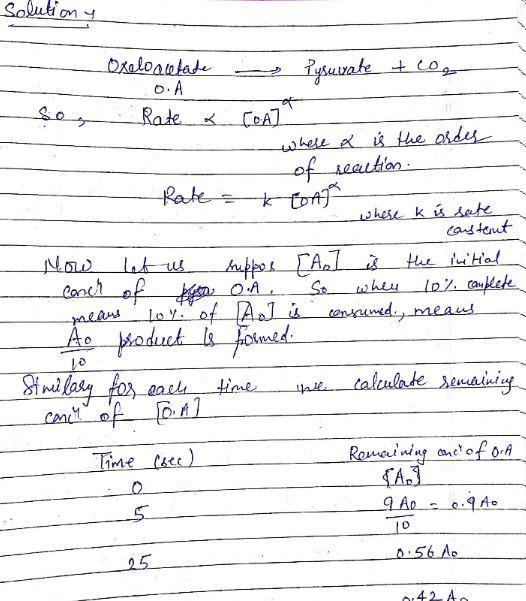 Solution →
Oxaloacetate ⟶ Pyruvate + CO2
O.A
So, Rate ∝ [OA]^α
where α is the order
of reaction.
Rate = k [OA]^α
where k is rate
constent
Now let us suppos [A0] is the initial
concn of O.A. So when 10% complete
means 10% of [A0] is consumed., means
A0/10 product is formed.
Similary for each time we calculate remaining
concn of [O.A]
Time (sec) Remaining concn of O.A
0 [A0]
5 9A0/10 = 0.9A0
25 0.56 A0
0.42 A0